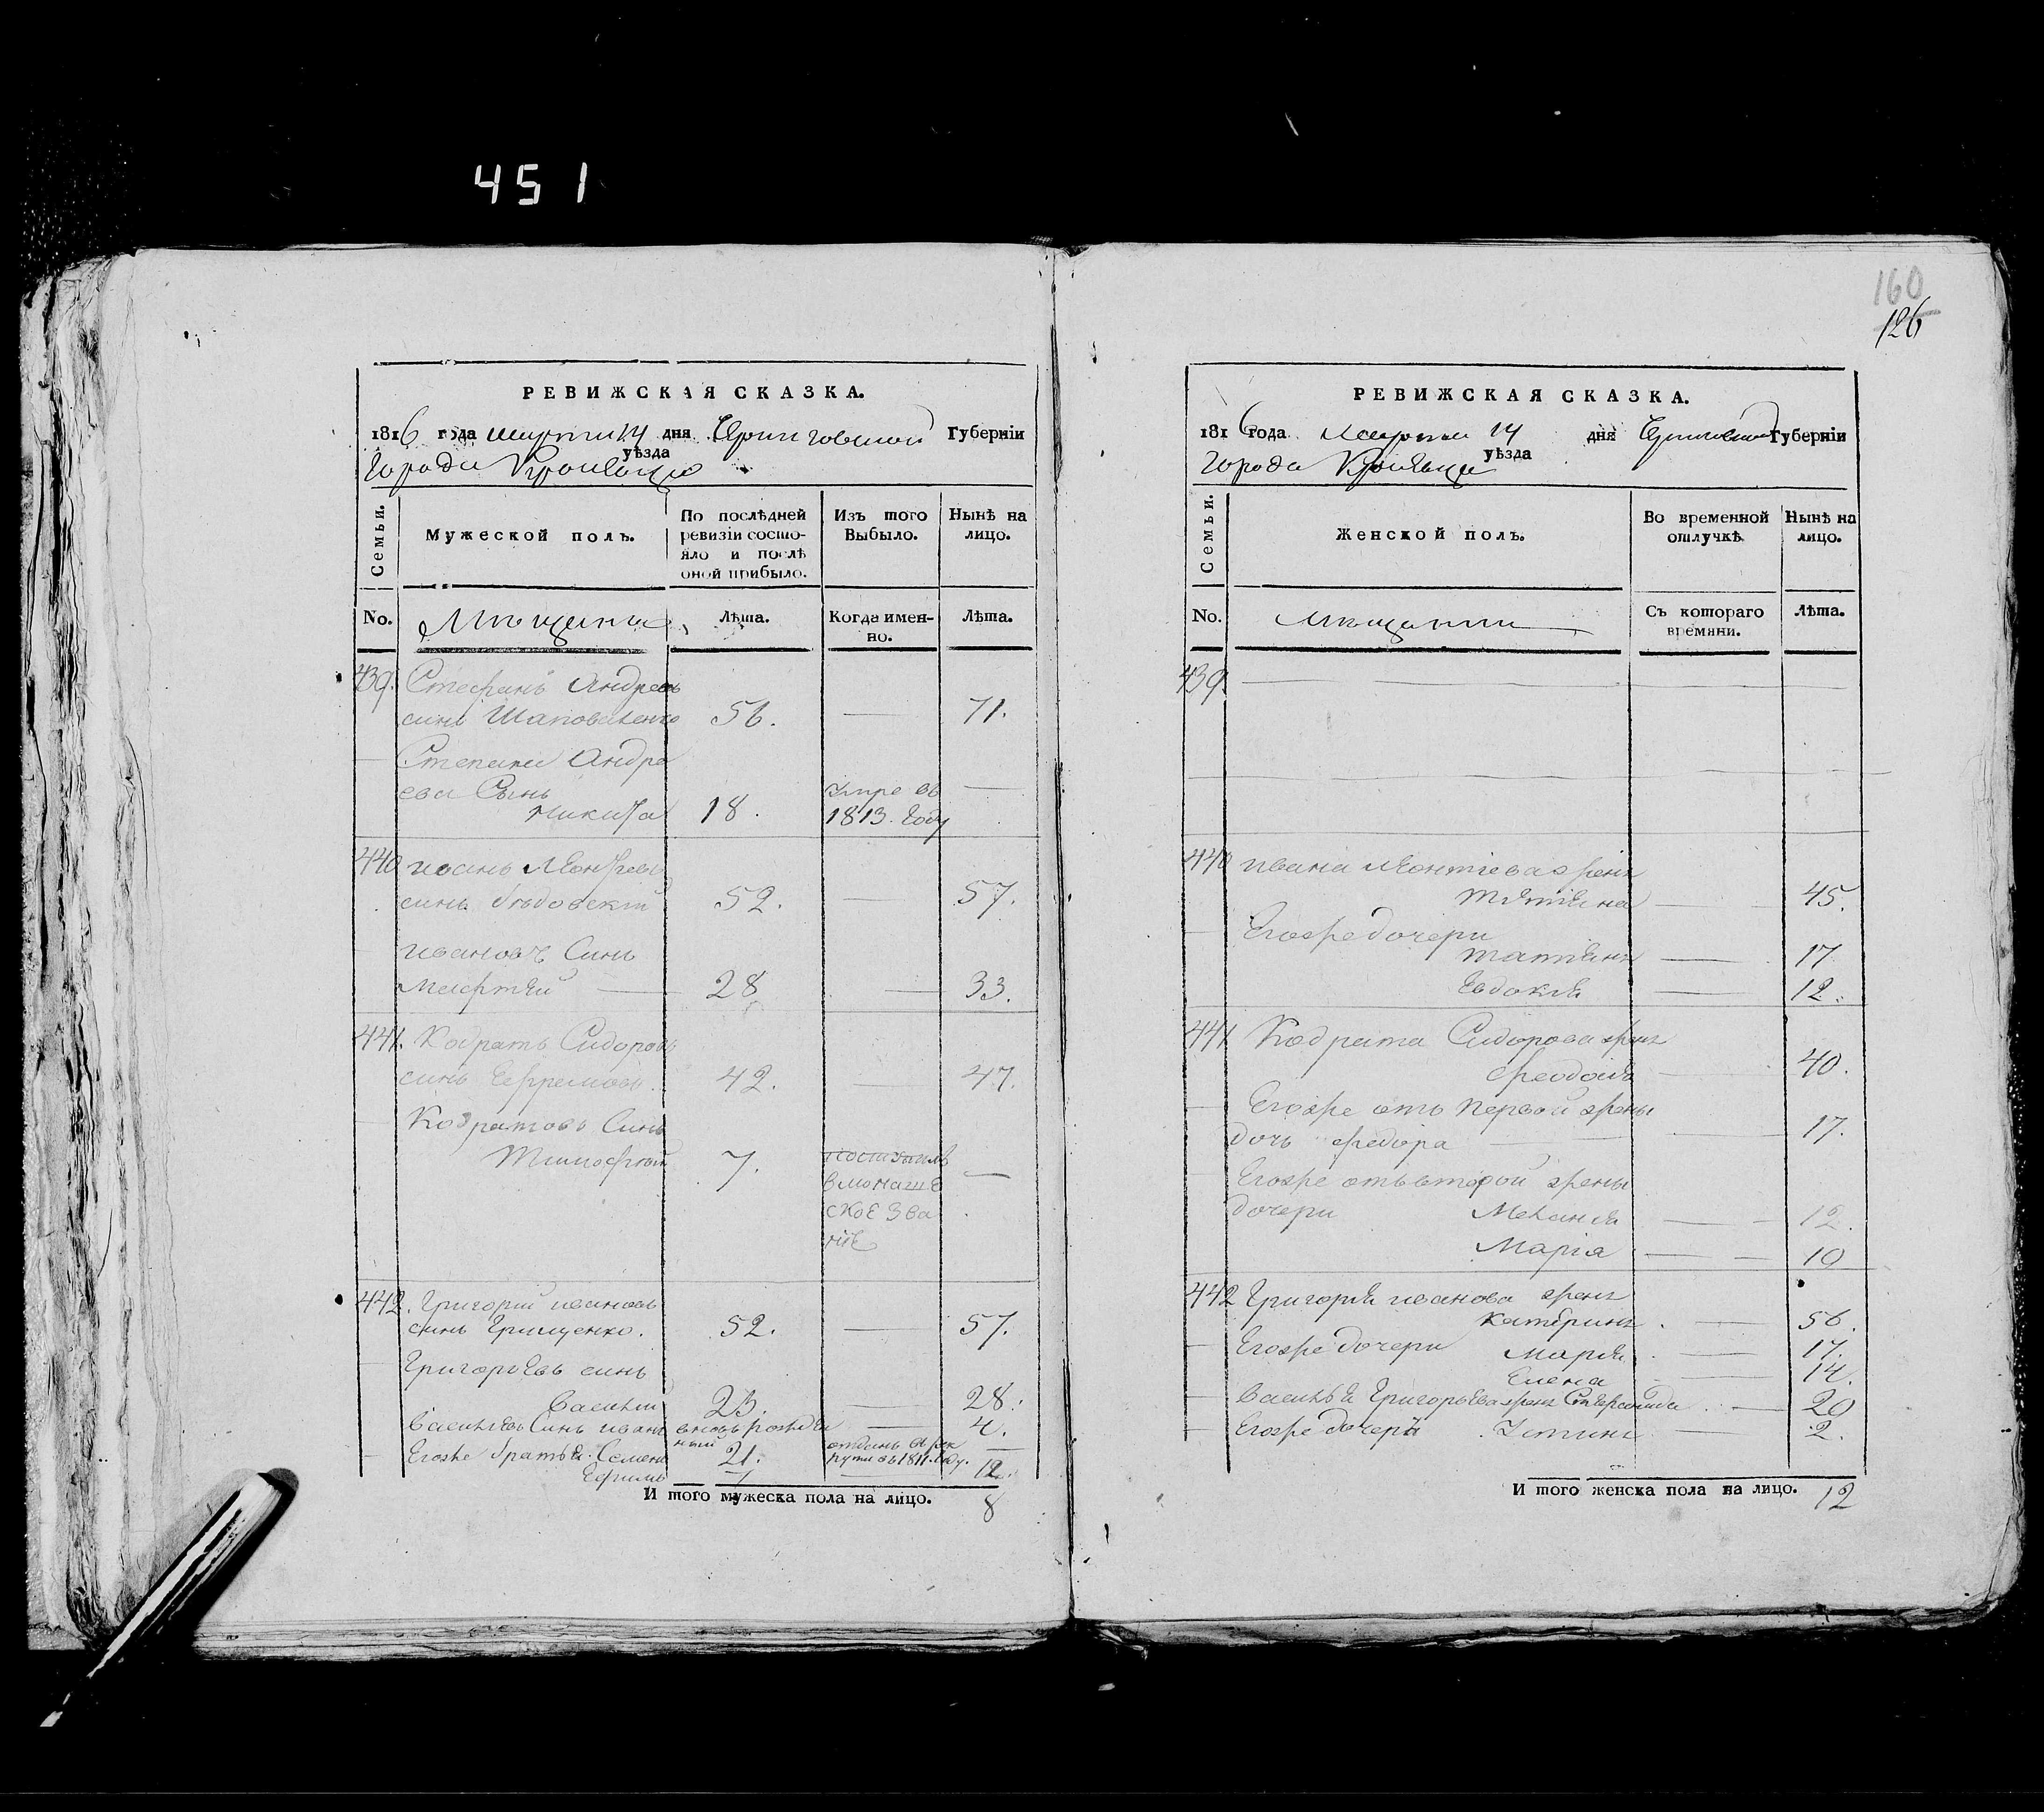 451
РЕВИЖСКАЯ СКАЗКА.
1816 года марта 14 дня Черниговской Губерніи
уѣзда
города Кролевца
Семьи.
Мужеской полъ.
По послѣдней ревизіи состо-
яло и послѣ
оной прибыло.
Изъ того
Выбыло.
Нынѣ на
лицо.
No.
Мещане
Лѣта.
Когда имен-
но.
Лѣта.
439. Стефанъ Андреевъ
синъ Шаповаленко 56. — 71.
Степана Андре
ева Сынъ умре въ —
Никита 18. 1813. году
440 иванъ Леонтіевъ
синъ 52. — 57.
ивановъ Синъ
28 — 33.
441. Кодратъ Сидоровъ
синъ Ефремовъ. 42. — 47.
Кодратовъ Синъ
Тимофей 7. поступилъ —
в монаше
ское зва
ніе
442. Григорій ивановъ
синъ Грищенко. 52. — 57.
Григорьевъ синъ
Василій 23. — 28.
Васильевъ Синъ иванъ вновь рожде — 4.
нный
Егоже братья Семенъ 21. отданъ в рек —
рути въ 1811. году.
Ефимъ 7 — 12.
И того мужеска пола на лицо. 8
160
126
РЕВИЖСКАЯ СКАЗКА.
1816 года марта 14 дня Черниговской Губерніи
уѣзда
города Кролевца
Семьи.
Женской полъ.
Во временной
отлучкѣ
Нынѣ на
лицо.
No.
Мещанки
Съ котораго
времяни.
Лѣта.
439 —
440 ивана Леонтіева жена
— 45.
Егоже дочери
татіяна — 17
Евдокія — 12.
441 Кодрата Сидорова жена
Феодосія — 40.
Егоже отъ первой жены
дочь Федора — 17.
Егоже отъ второй жены
дочери Меланія — 12.
Марія — 10
442 Григорія иванова жена
Катерина — 56.
Егоже дочери Марія — 17.
Елена 14.
Василія Григорьева жена — 20
Егоже дочери Устина — 2.
И того женска пола на лицо. 12